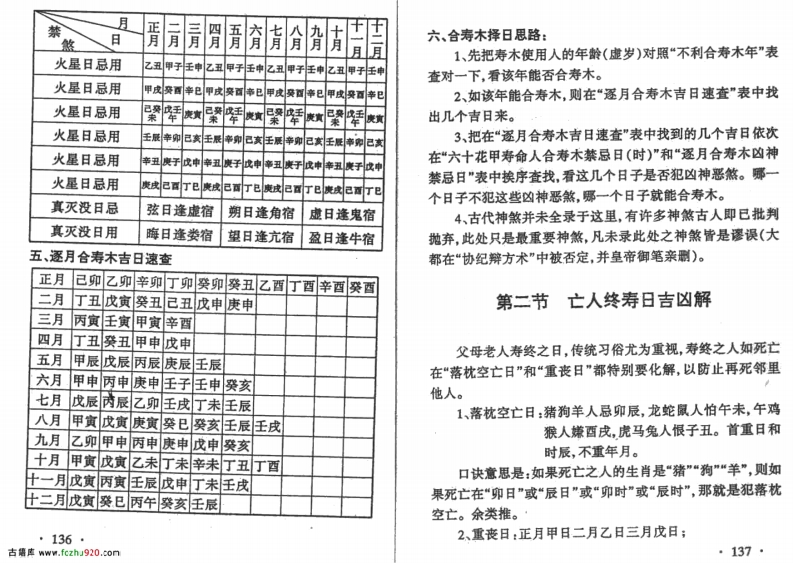 月
日
禁煞
正月 二月 三月 四月 五月 六月 七月 八月 九月 十月 十一月 十二月
火星日忌用 乙丑 甲子 壬申 乙丑 甲子 壬申 乙丑 甲子 壬申 乙丑 甲子 壬申
火星日忌用 甲戌 癸酉 辛巳 甲戌 癸酉 辛巳 甲戌 癸酉 辛巳 甲戌 癸酉 辛巳
火星日忌用 己癸未 戊壬午 庚寅 己癸未 戊壬午 庚寅 己癸未 戊壬午 庚寅 己癸未 戊壬午 庚寅
火星日忌用 壬辰 辛卯 己亥 壬辰 辛卯 己亥 壬辰 辛卯 己亥 壬辰 辛卯 己亥
火星日忌用 辛丑 庚子 戊申 辛丑 庚子 戊申 辛丑 庚子 戊申 辛丑 庚子 戊申
火星日忌用 庚戌 己酉 丁巳 庚戌 己酉 丁巳 庚戌 己酉 丁巳 庚戌 己酉 丁巳
真灭没日忌 弦日逢虚宿 朔日逢角宿 虚日逢鬼宿
真灭没日用 晦日逢娄宿 望日逢亢宿 盈日逢牛宿
五、逐月合寿木吉日速查
正月 己卯 乙卯 辛卯 丁卯 癸卯 癸丑 乙酉 丁酉 辛酉 癸酉
二月 丁丑 戊寅 癸丑 己丑 戊申 庚申
三月 丙寅 壬寅 甲寅 辛酉
四月 丁丑 癸丑 甲申 戊申
五月 甲辰 戊辰 丙辰 庚辰 壬辰
六月 甲申 丙申 庚申 壬子 壬申 癸亥
七月 戊辰 丙辰 乙卯 壬戌 丁未 壬辰
八月 甲寅 戊寅 庚寅 癸巳 癸亥 壬辰 壬戌
九月 乙卯 甲申 丙申 庚申 戊申 癸亥
十月 甲寅 戊寅 乙未 丁未 辛未 丁丑 丁酉
十一月 戊寅 壬辰 戊申 丁未 壬戌
十二月 戊寅 癸巳 丙午 癸亥 壬辰
· 136 ·
古籍库 www.fczhu920.com
六、合寿木择日思路:
1、先把寿木使用人的年龄(虚岁)对照“不利合寿木年”表
查对一下,看该年能否合寿木。
2、如该年能合寿木,则在“逐月合寿木吉日速查”表中找
出几个吉日来。
3、把在“逐月合寿木吉日速查”表中找到的几个吉日依次
在“六十花甲寿命人合寿木禁忌日(时)”和“逐月合寿木凶神
禁忌日”表中挨序查找,看这几个日子是否犯凶神恶煞。哪一
个日子不犯这些凶神恶煞,哪一个日子就能合寿木。
4、古代神煞并未全录于这里,有许多神煞古人即已批判
抛弃,此处只是最重要神煞,凡未录此处之神煞皆是谬误(大
都在“协纪辩方术”中被否定,并皇帝御笔亲删)。
第二节 亡人终寿日吉凶解
父母老人寿终之日,传统习俗尤为重视,寿终之人如死亡
在“落枕空亡日”和“重丧日”都特别要化解,以防止再死邻里
他人。
1、落枕空亡日:猪狗羊人忌卯辰,龙蛇鼠人怕午未,午鸡
猴人嫌酉戌,虎马兔人恨子丑。首重日和
时辰,不重年月。
口诀意思是:如果死亡之人的生肖是“猪”“狗”“羊”,则如
果死亡在“卯日”或“辰日”或“卯时”或“辰时”,那就是犯落枕
空亡。余类推。
2、重丧日:正月甲日二月乙日三月戊日;
· 137 ·